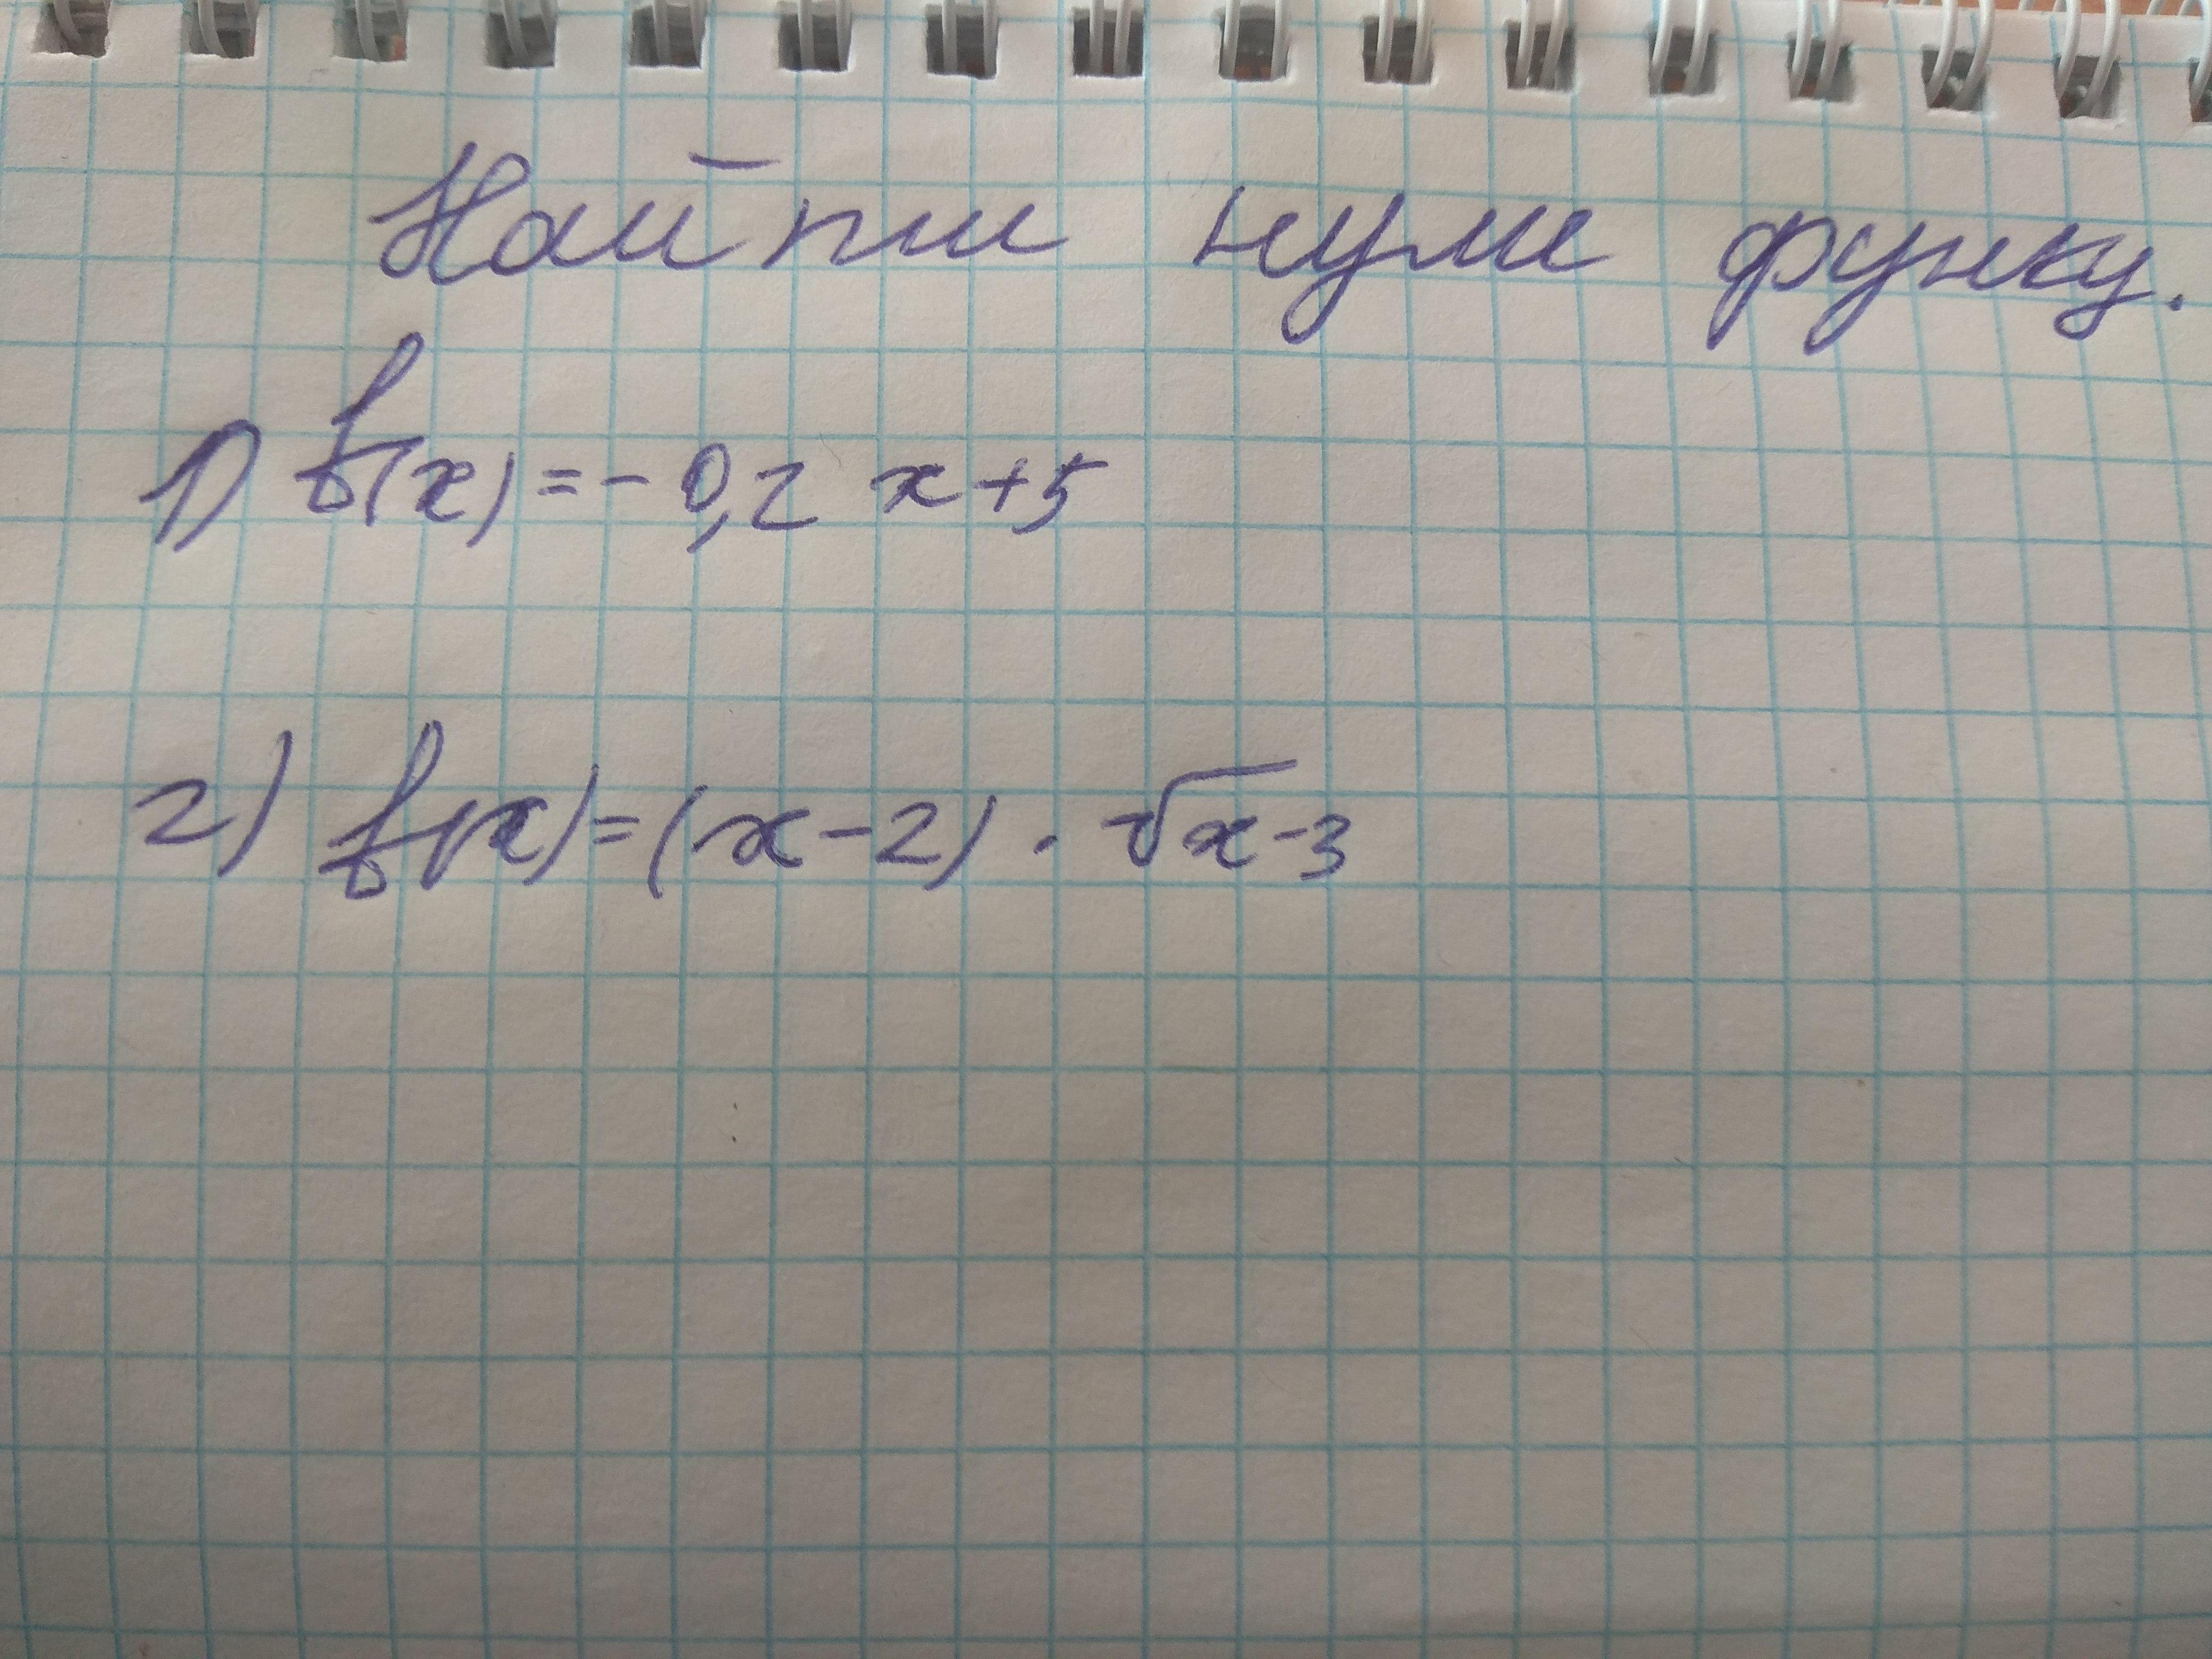 Найти нули функц.
1) f(x)=-0,2 x+5
2) f(x)=(x-2) · √x-3